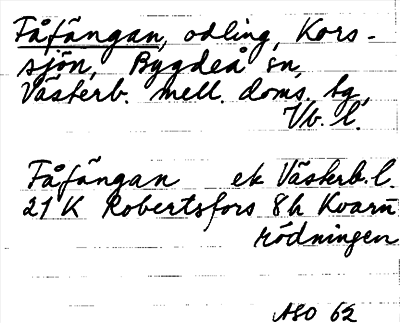 Fåfängan, odling, Kors-
sjön, Bygdeå sn,
Västerb. mell. doms. tg,
Vb. l.
Fåfängan ek Västerb. l.
21 K Robertsfors 8h Kvarn
rödningen
ASO 62